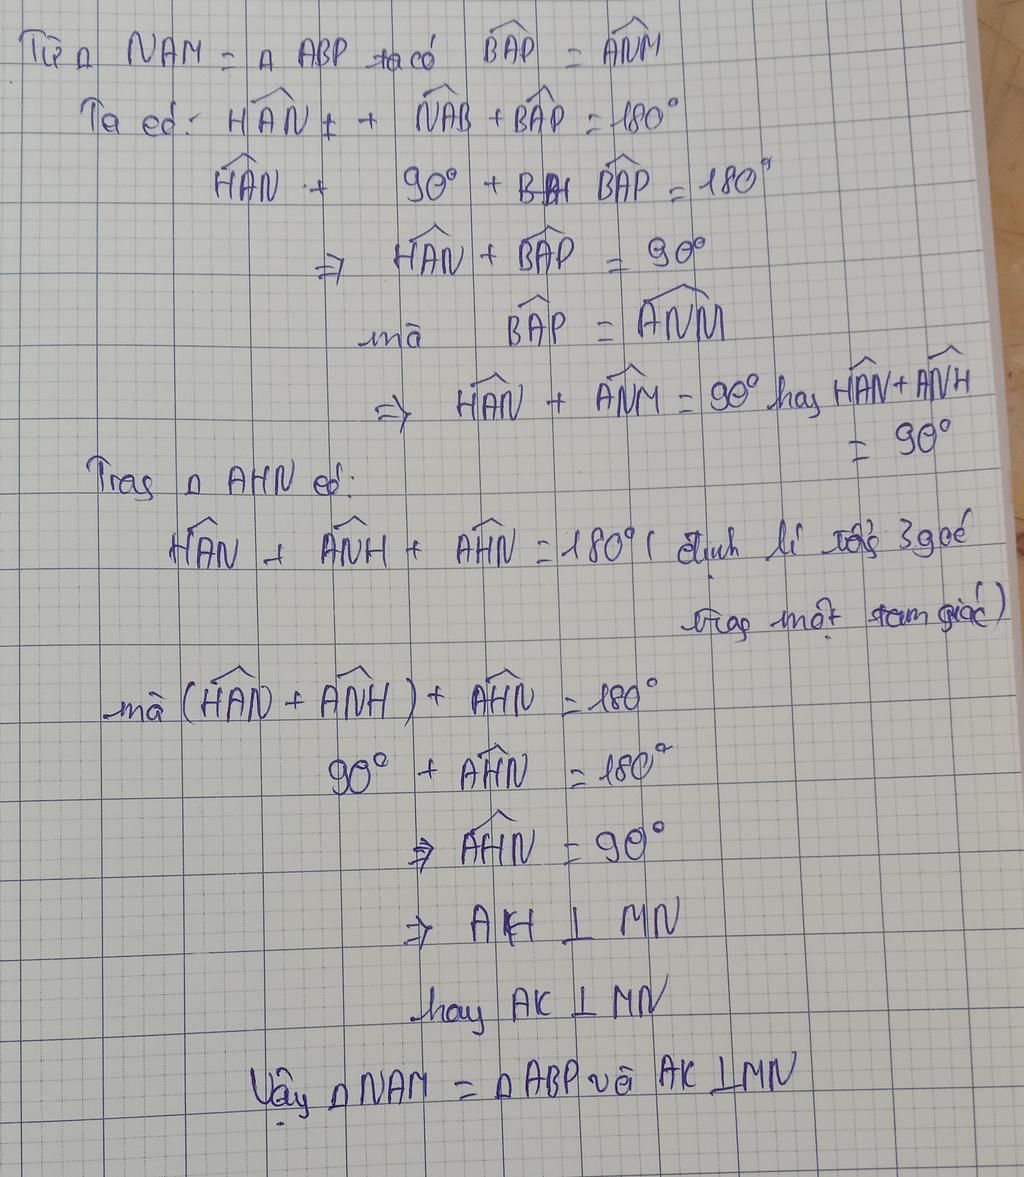 Từ △ NAM = △ ABP ta có BAP̂ = ANM̂
Ta có: HAN̂ + + NAB̂ + BAP̂ = 180°
HAN̂ + 90° + BAP̂ = 180°
⇒ HAN̂ + BAP̂ = 90°
mà BAP̂ = ANM̂
⇒ HAN̂ + ANM̂ = 90° hay HAN̂ + ANĤ
= 90°
Trog △ AHN có:
HAN̂ + ANĤ + AHN̂ = 180° ( định lí tổng 3 góc
trog một tam giác)
mà (HAN̂ + ANĤ) + AHN̂ = 180°
90° + AHN̂ = 180°
⇒ AHN̂ = 90°
⇒ AH ⊥ MN
hay AK ⊥ MN
Vậy △ NAM = △ ABP và AK ⊥ MN